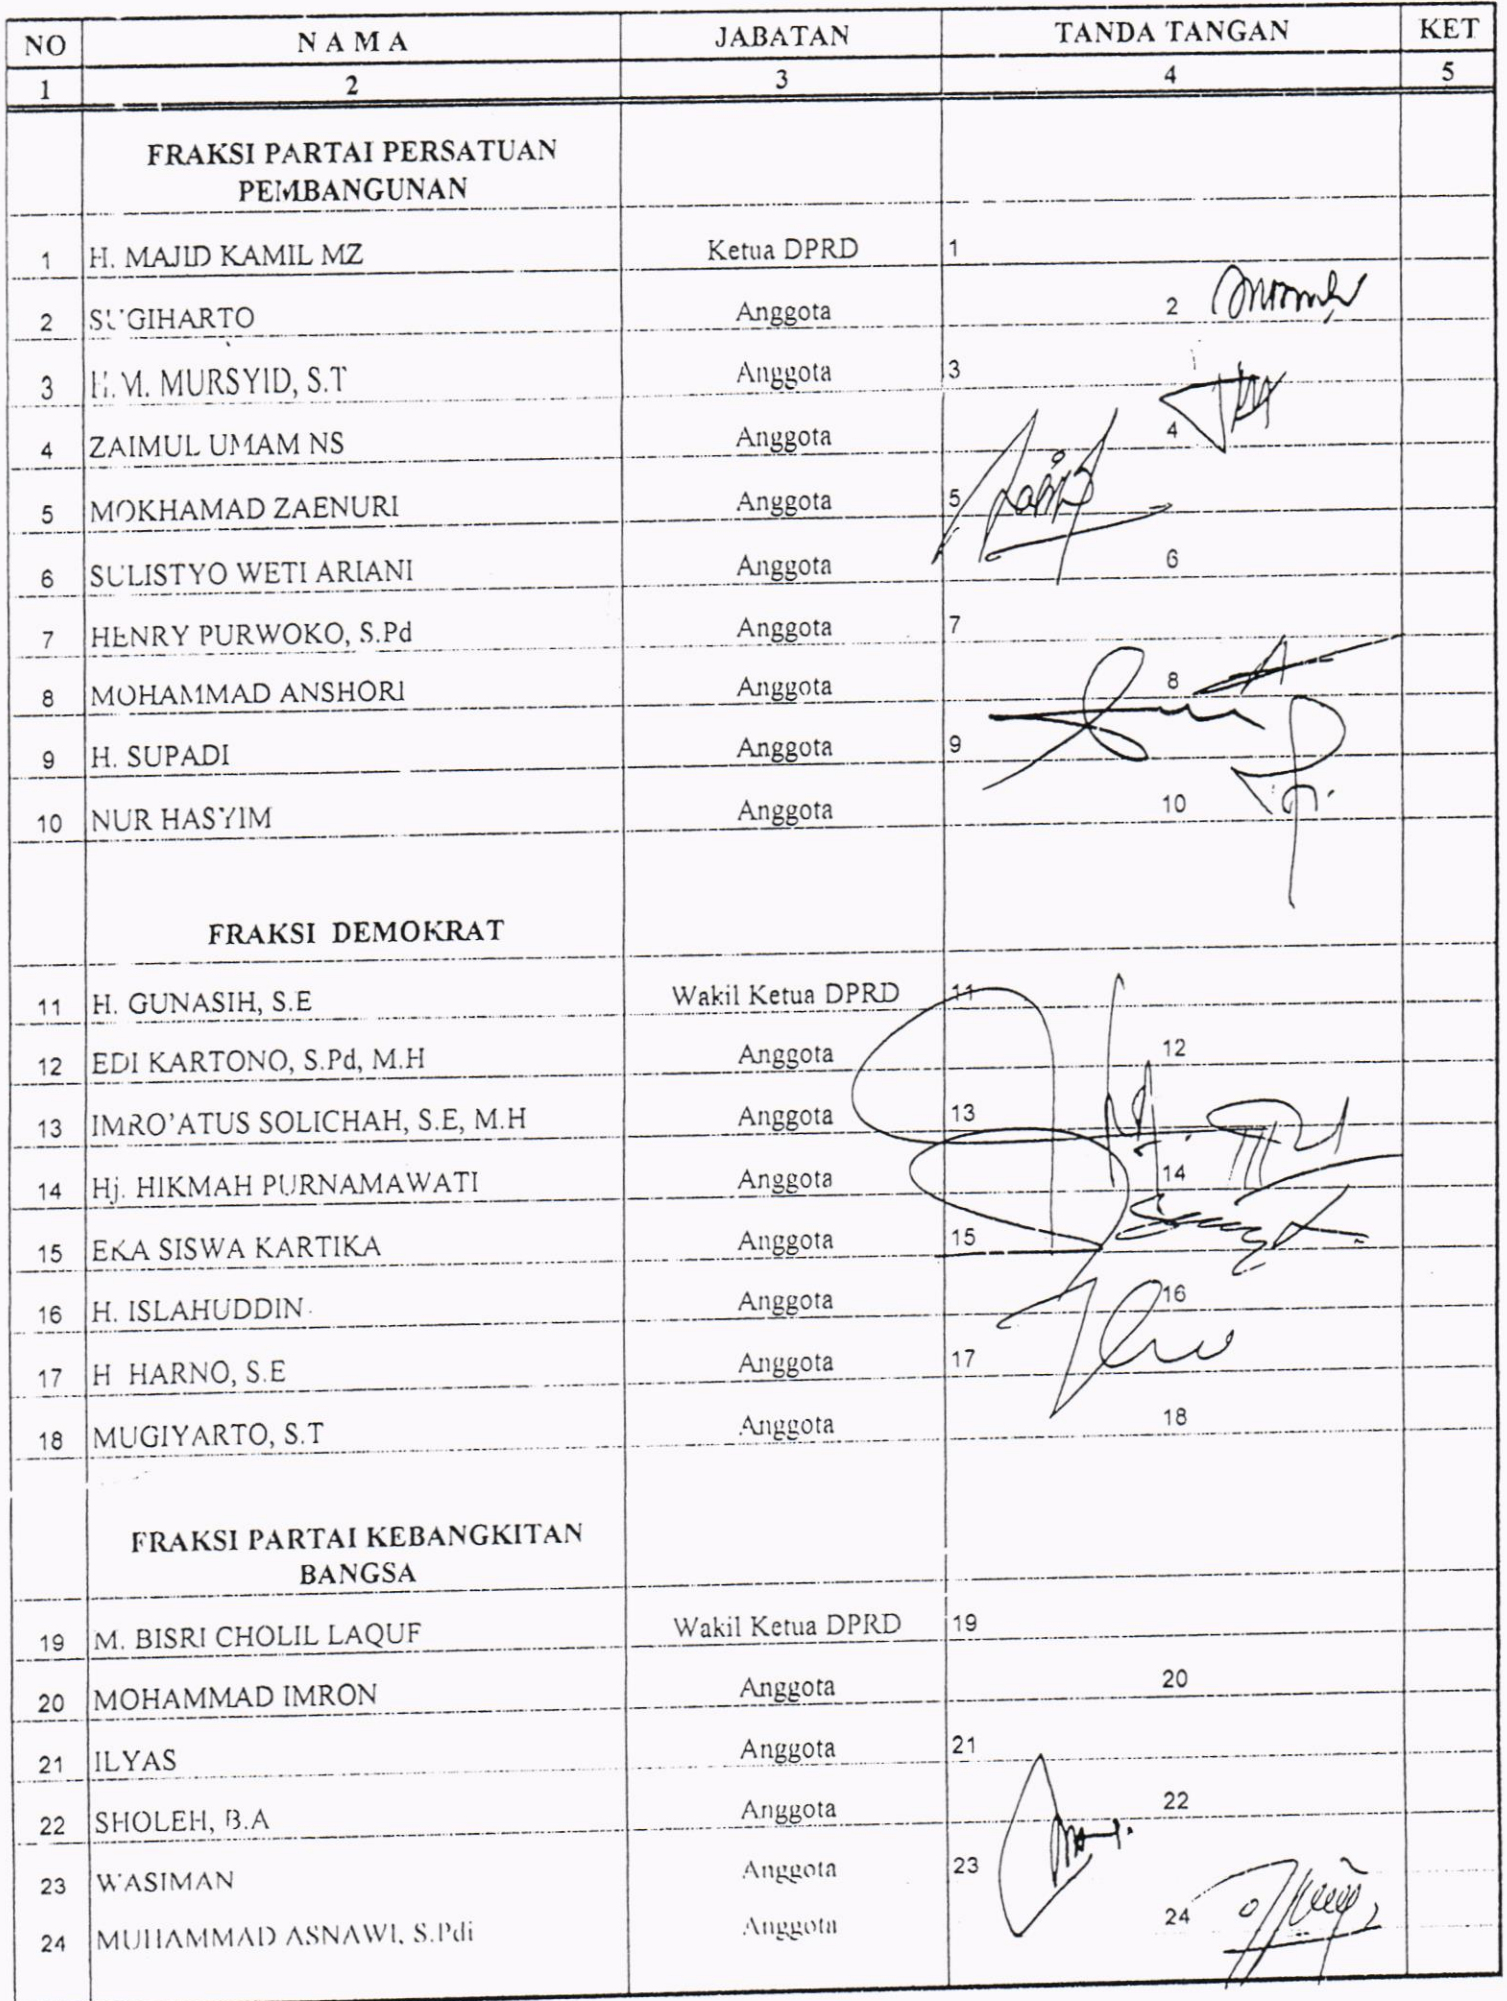 NO N A M A JABATAN TANDA TANGAN KET
1 2 3 4 5
FRAKSI PARTAI PERSATUAN
PEMBANGUNAN
1 H. MAJID KAMIL MZ Ketua DPRD 1
2 SUGIHARTO Anggota 2
3 H.M. MURSYID, S.T Anggota 3
4 ZAIMUL UMAM NS Anggota 4
5 MOKHAMAD ZAENURI Anggota 5
6 SULISTYO WETI ARIANI Anggota 6
7 HENRY PURWOKO, S.Pd Anggota 7
8 MOHAMMAD ANSHORI Anggota 8
9 H. SUPADI Anggota 9
10 NUR HASYIM Anggota 10
FRAKSI DEMOKRAT
11 H. GUNASIH, S.E Wakil Ketua DPRD 11
12 EDI KARTONO, S.Pd, M.H Anggota 12
13 IMRO'ATUS SOLICHAH, S.E, M.H Anggota 13
14 Hj. HIKMAH PURNAMAWATI Anggota 14
15 EKA SISWA KARTIKA Anggota 15
16 H. ISLAHUDDIN Anggota 16
17 H HARNO, S.E Anggota 17
18 MUGIYARTO, S.T Anggota 18
FRAKSI PARTAI KEBANGKITAN
BANGSA
19 M. BISRI CHOLIL LAQUF Wakil Ketua DPRD 19
20 MOHAMMAD IMRON Anggota 20
21 ILYAS Anggota 21
22 SHOLEH, B.A Anggota 22
23 WASIMAN Anggota 23
24 MUHAMMAD ASNAWI, S.Pdi Anggota 24